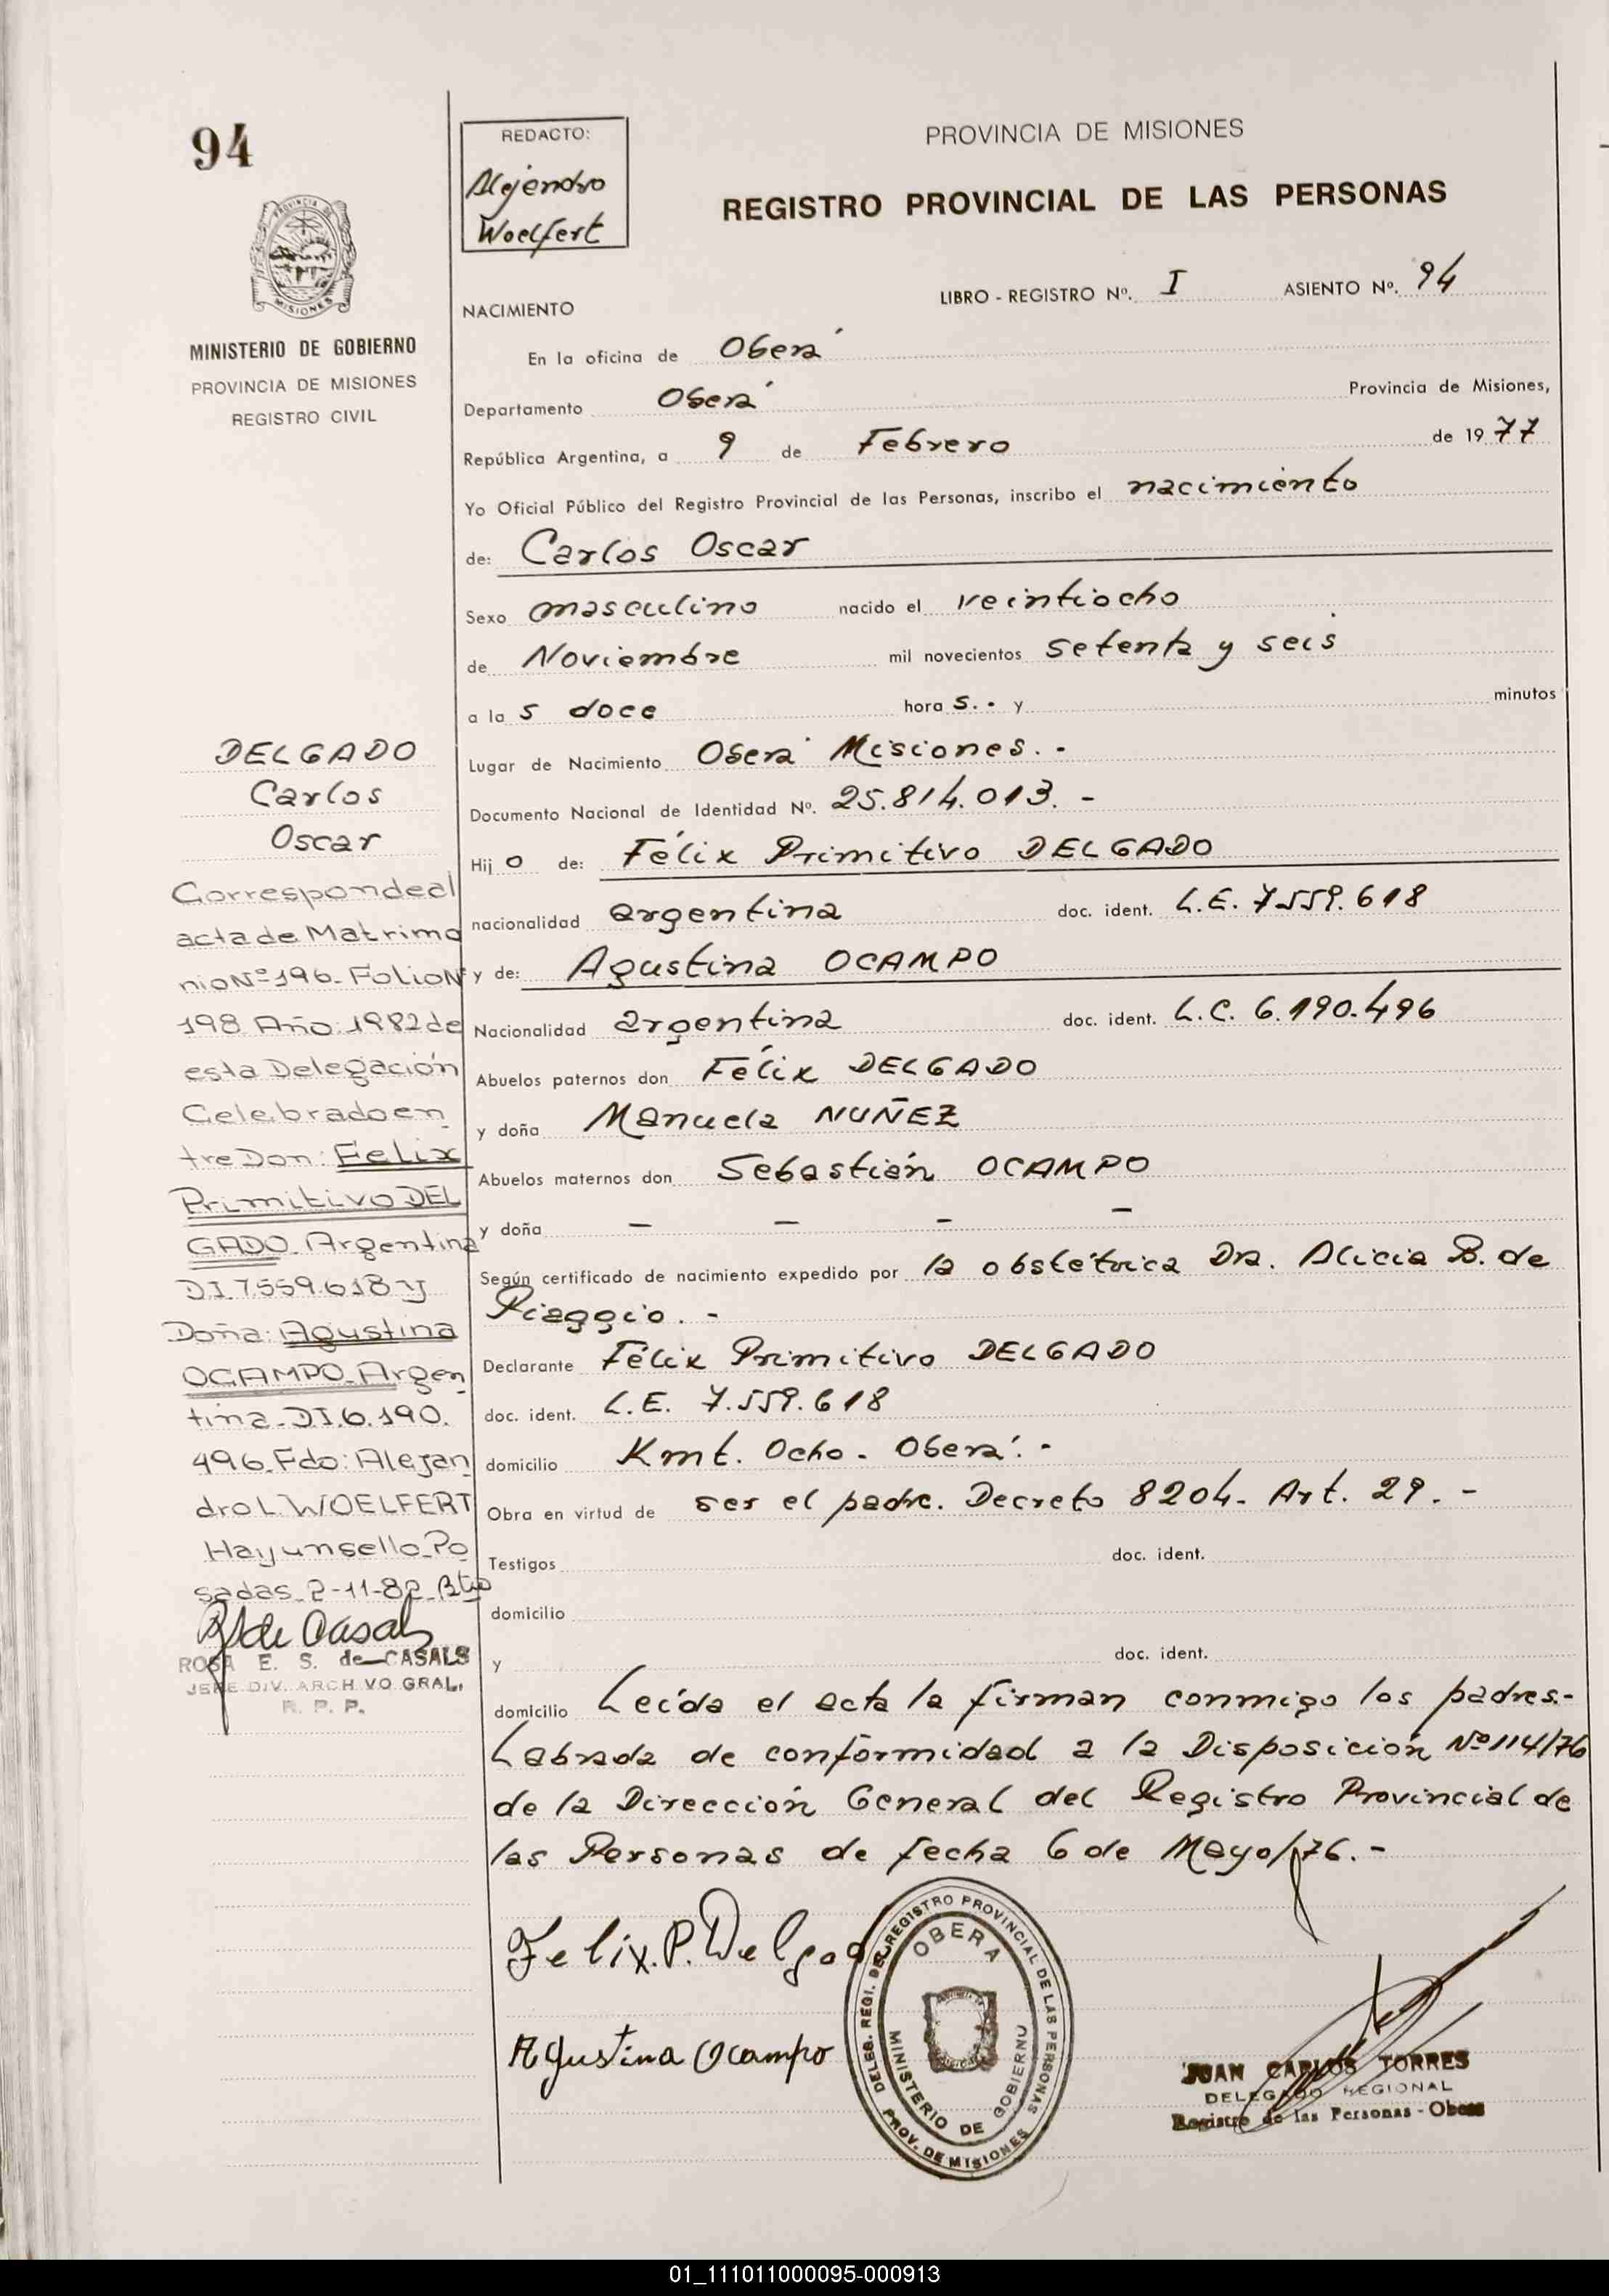 94
REDACTO:
Alejandro
Woelfert
PROVINCIA DE MISIONES
REGISTRO PROVINCIAL DE LAS PERSONAS
PROVINCIA DE
MISIONES
MINISTERIO DE GOBIERNO
PROVINCIA DE MISIONES
REGISTRO CIVIL
LIBRO - REGISTRO Nº. I ASIENTO Nº. 94
NACIMIENTO
En la oficina de Oberá
Departamento Oberá Provincia de Misiones,
República Argentina, a 9 de Febrero de 1977
Yo Oficial Público del Registro Provincial de las Personas, inscribo el nacimiento
de: Carlos Oscar
Sexo masculino nacido el veintiocho
de Noviembre mil novecientos setenta y seis
a las doce horas.- y minutos
Lugar de Nacimiento Oberá Misiones.-
Documento Nacional de Identidad Nº. 25.814.013.-
Hijo de: Félix Primitivo DELGADO
nacionalidad argentina doc. ident. L.E. 7.559.618
y de: Agustina OCAMPO
Nacionalidad argentina doc. ident. L.C. 6.190.496
Abuelos paternos don Félix DELGADO
y doña Manuela NUÑEZ
Abuelos maternos don Sebastián OCAMPO
y doña - - - -
Según certificado de nacimiento expedido por la obstétrica Dra. Alicia B. de
Piaggio.-
Declarante Félix Primitivo DELGADO
doc. ident. L.E. 7.559.618
domicilio Kmt. Ocho - Oberá.-
Obra en virtud de ser el padre. Decreto 8204- Art. 29.-
Testigos doc. ident.
domicilio
y doc. ident.
domicilio Leída el acta la firman conmigo los padres.-
Labrada de conformidad a la Disposición Nº 114/76
de la Dirección General del Registro Provincial de
las Personas de fecha 6 de Mayo/76.-
DELGADO
Carlos
Oscar
Corresponde al
acta de Matrimo
nio Nº 196- Folio Nº
198 Año: 1982 de
esta Delegación
Celebrado en
tre Don: Felix
Primitivo DEL
GADO Argentina
D.I. 7.559.618 y
Doña: Agustina
OCAMPO- Argen
tina- D.I. 6.190.
496- Fdo: Alejan
dro L. WOELFERT
Hay un sello- Po
sadas 2-11-82
R S de Casals
ROSA E. S. de CASALS
JEFE DIV. ARCHIVO GRAL.
R. P. P.
Felix.P.Delgado
Agustina Ocampo
DELEG. REGI. DEL REGISTRO PROVINCIAL DE LAS PERSONAS
OBERA
MINISTERIO DE GOBIERNO
PROV. DE MISIONES
JUAN CARLOS TORRES
DELEGADO REGIONAL
Registro de las Personas - Obera
01_111011000095-000913